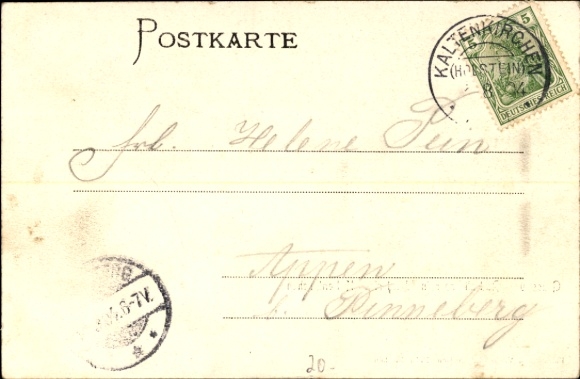 POSTKARTE
5
DEUTSCHES REICH
KALTENKIRCHEN
(HOLSTEIN)
8 04
Frl. Helene Pein
Appen
b. Pinneberg
6-7V.
20-